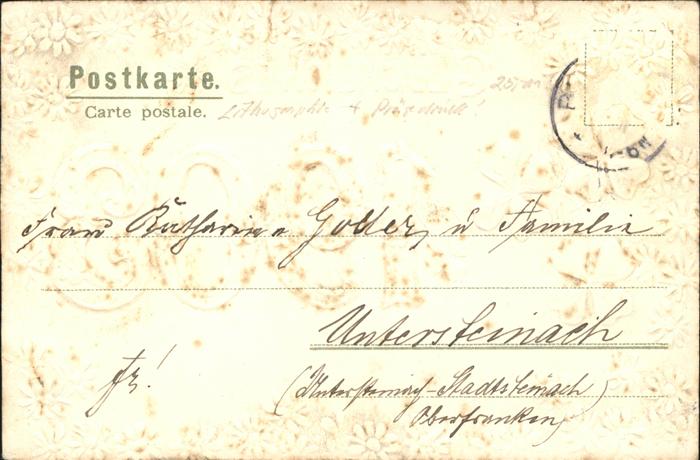 Postkarte.
Carte postale.
Lithographie + Prägedruck!
Frau Katharina Goller, u Familie
Untersteinach
fr!
(Untersteinach-Stadtsteinach)
Oberfranken,